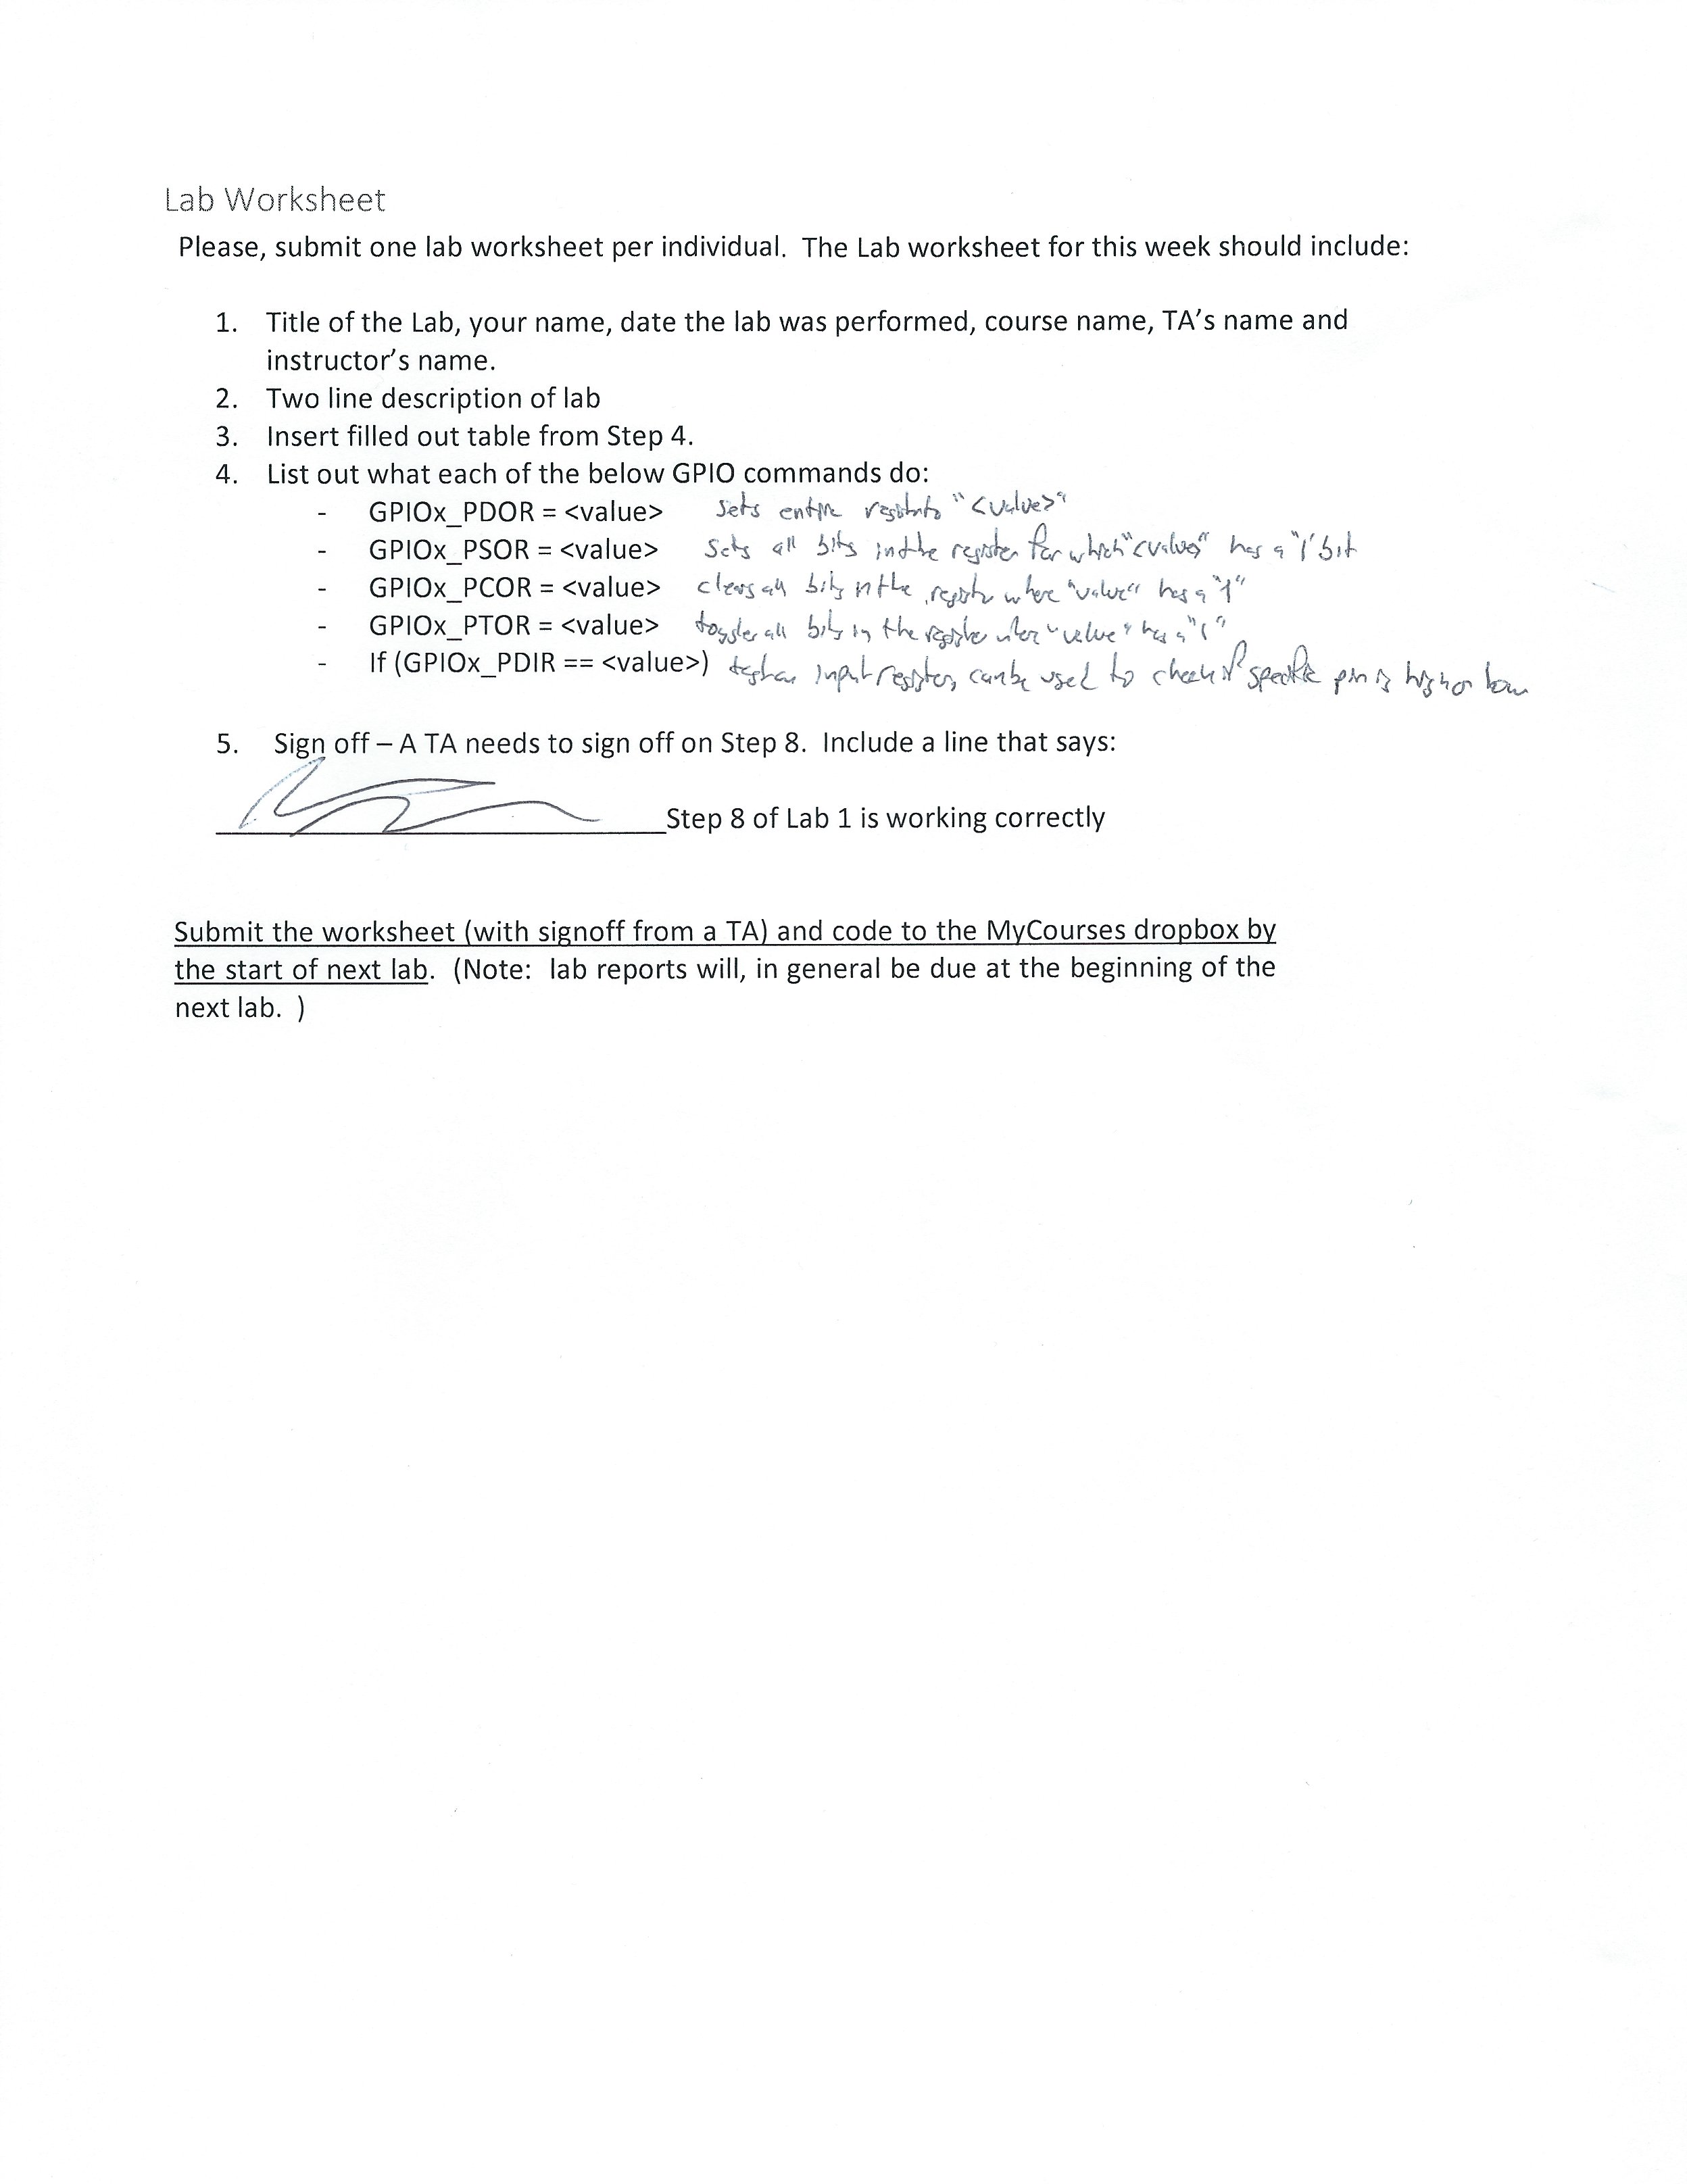 Lab Worksheet
Please, submit one lab worksheet per individual. The Lab worksheet for this week should include:
1. Title of the Lab, your name, date the lab was performed, course name, TA's name and
instructor's name.
2. Two line description of lab
3. Insert filled out table from Step 4.
4. List out what each of the below GPIO commands do:
- GPIOx_PDOR = <value> sets entire "<value>"
- GPIOx_PSOR = <value> Sets all bits in the register for which "<value>" has a "1" bit
- GPIOx_PCOR = <value> clears all bits in the register where "value" has a "1"
- GPIOx_PTOR = <value> toggles all bits in the register where "value" has a "1"
- If (GPIOx_PDIR == <value>) input register, can be used to check if specific pin is high or low
5. Sign off – A TA needs to sign off on Step 8. Include a line that says:
Step 8 of Lab 1 is working correctly
Submit the worksheet (with signoff from a TA) and code to the MyCourses dropbox by
the start of next lab. (Note: lab reports will, in general be due at the beginning of the
next lab. )